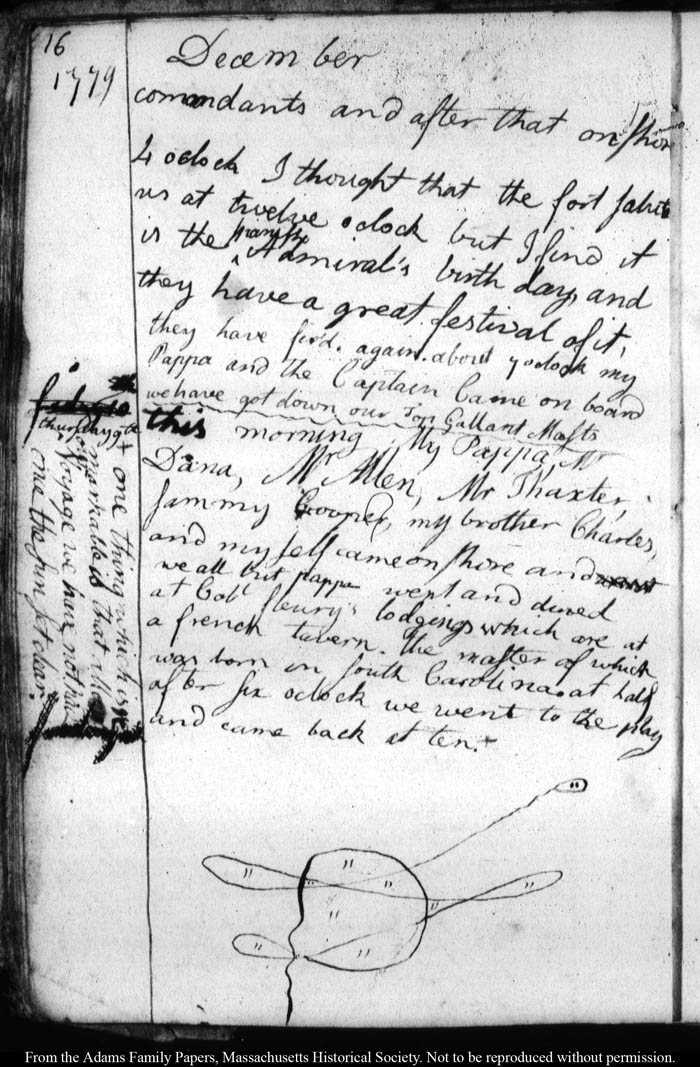 16
December
1779
commdants and after that on shore
4 oclock I thought that the fort salute
us at twelve oclock but I find it
is the Spanish Admiral's birth day, and
they have a great festival of it,
they have fir'd. again. about 7 oclock my
Pappa and the Captain Came on board
we have got down our Top Gallant Masts
thursday 9th
this morning My Pappa, Mr
Dana, Mr Allen, Mr Thaxter,
Sammy Cooper, my brother Charles,
and my self came on shore and went
we all but pappa went and dined
at Col Fleury's lodgings which are at
a french tavern. the master of which
was born in South Carolina. at half
after six oclock we went to the play
and came back at ten. +
+ one thing which is ve
remarkable is that all
our Voyage we have not had
once the sun set clear.
From the Adams Family Papers, Massachusetts Historical Society. Not to be reproduced without permission.